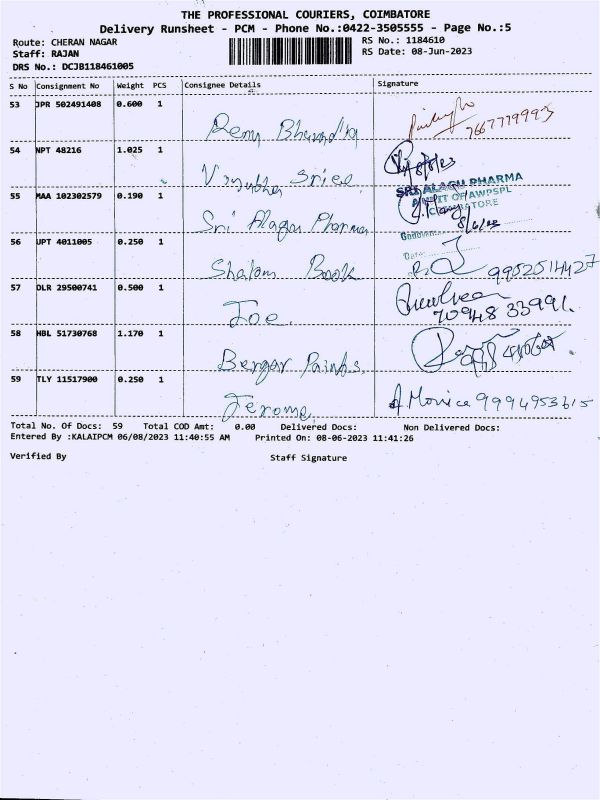 THE PROFESSIONAL COURIERS, COIMBATORE
Delivery Runsheet - PCM - Phone No.:0422-3505555 - Page No.:5
Route: CHERAN NAGAR
RS No.: 1184610
Staff: RAJAN
RS Date: 08-Jun-2023
DRS No.: DCJB118461005
S No Consignment No Weight PCS Consignee Details Signature
53 JPR 502491408 0.600 1
7667779993
54 NPT 48216 1.025 1
8/8/23
Sriee
55 MAA 102302579 0.190 1
SRI ALAGU PHARMA
A UNIT OF AWPSPL
COIMBATORE
Sri Alagu Pharma
8/6/23
Godown
Date:
56 UPT 4011005 0.250 1
Shalom Book
9952514427
57 DLR 29500741 0.500 1
Joe.
70948 33991.
58 HBL 51730768 1.170 1
Berger Paints.
59 TLY 11517900 0.250 1
Jerome,
A Monica 9994953615
Total No. Of Docs: 59 Total COD Amt: 0.00 Delivered Docs: Non Delivered Docs:
Entered By :KALAIPCM 06/08/2023 11:40:55 AM Printed On: 08-06-2023 11:41:26
Verified By Staff Signature